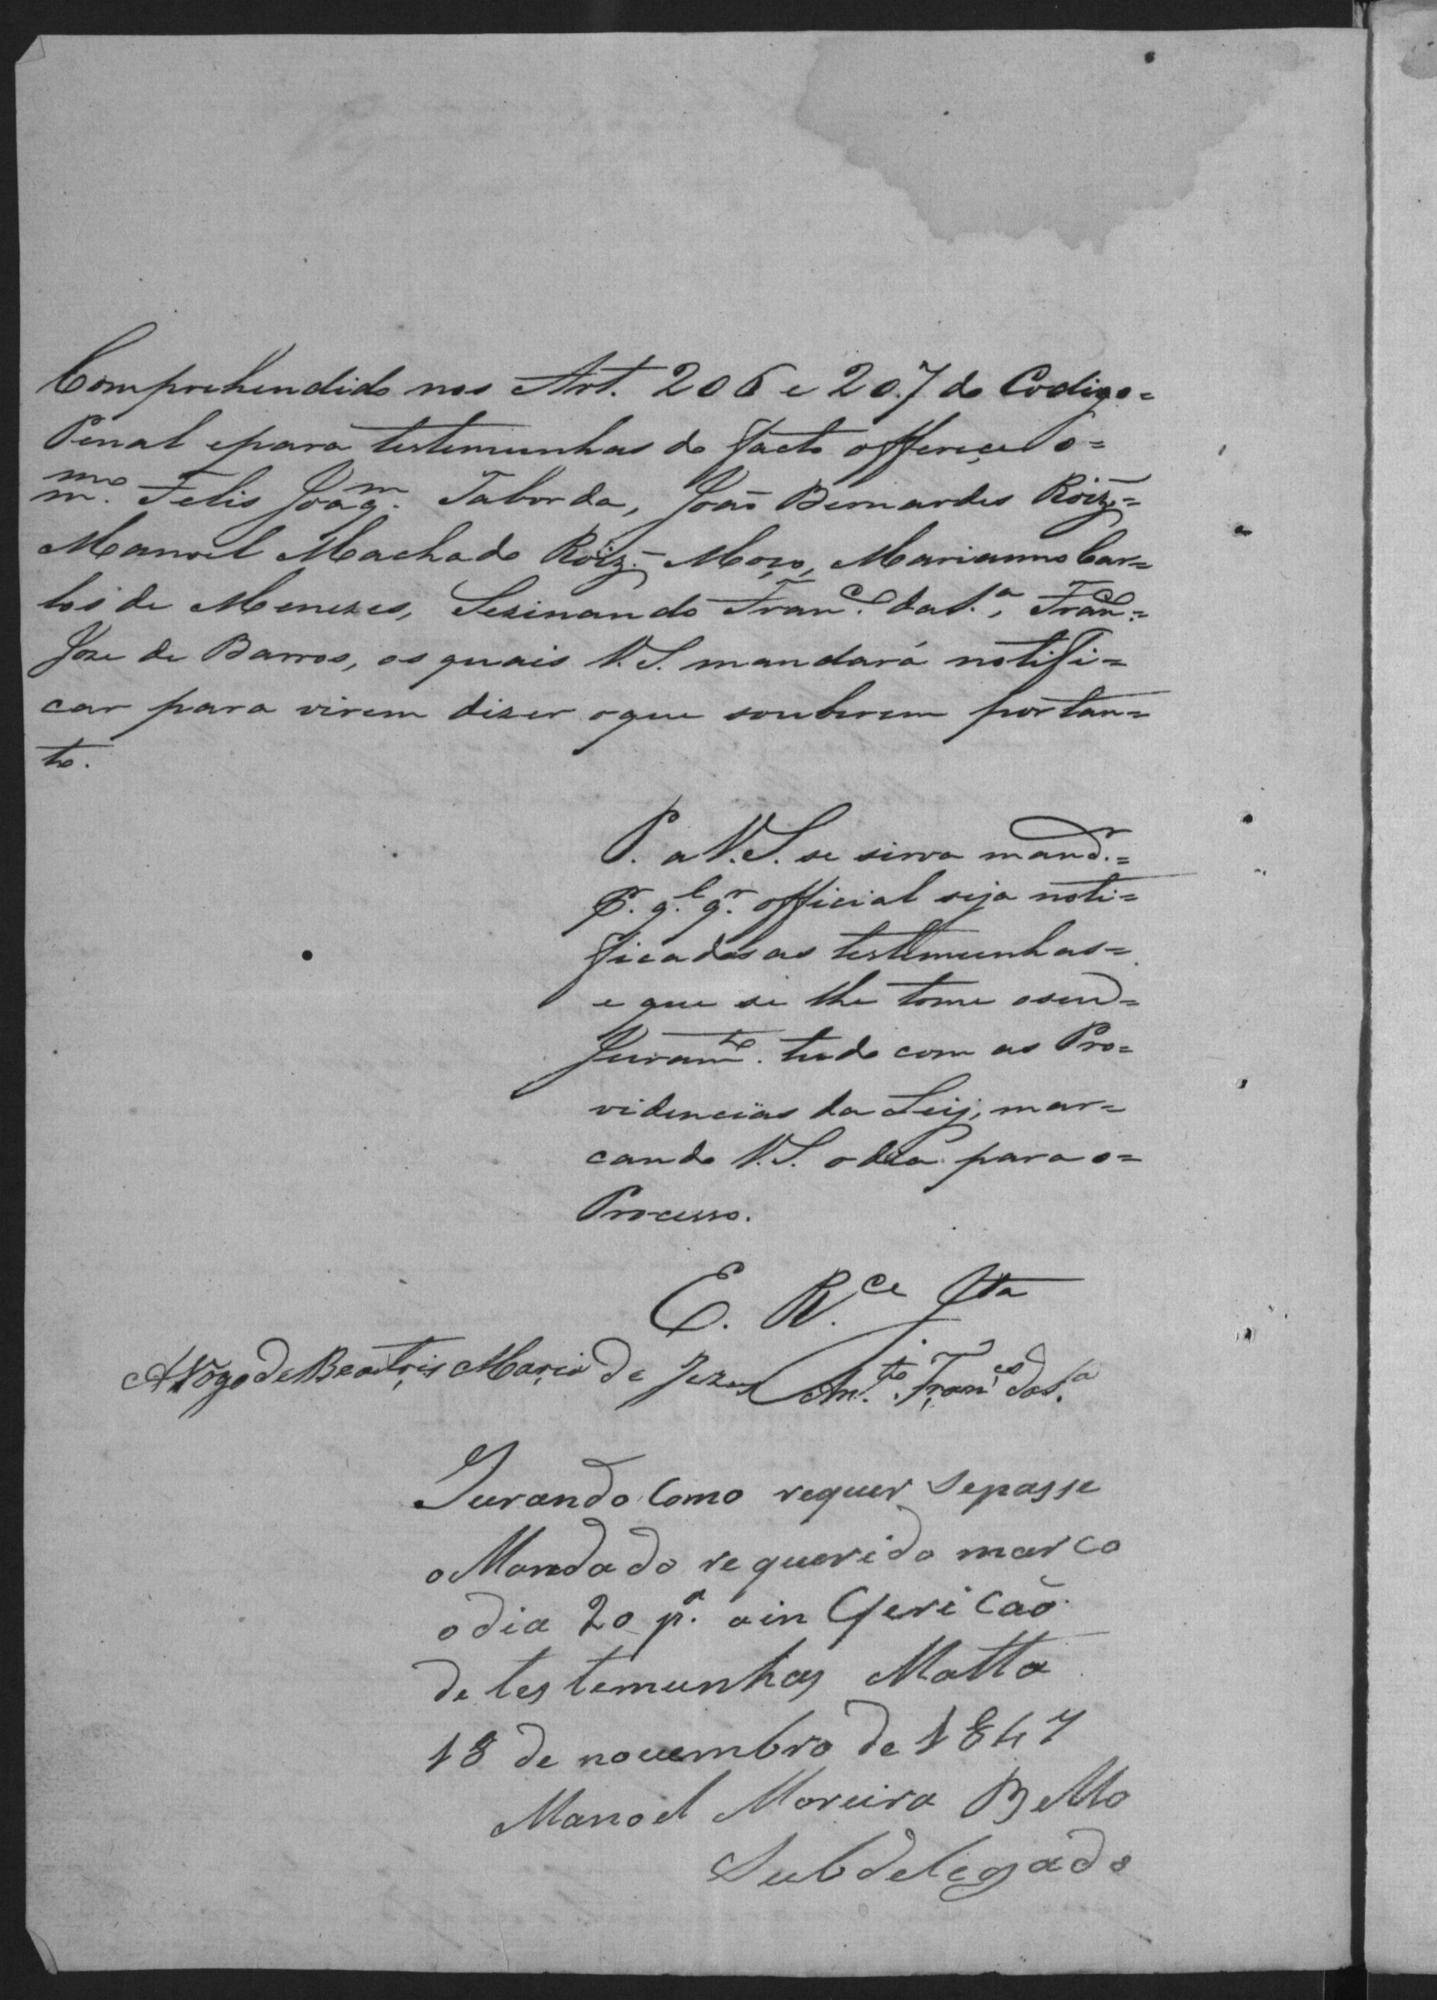 Comprehendido nos Art. 206 e 207 do Codigo=
Penal epara testemunhas do facto offerece o=
mmo. Felis Joaqm. Taborda, João Bernardes Roiz=
Manoel Machado Roiz. Moço, Marianno Car=
los de Menezes, Sezinando Franco. da Sa., Franco.=
Joze de Barros, os quais V. S. mandará notifi=
car para virem dizer oque souberem portan=
to.
P. a V. S. se sirva mandr.=
Pr. ql. qr. official seja noti=
ficadas as testemunhas=
e que se lhe tome o seu=
Juramto. tudo com as Pro=
videncias da Leij, mar=
cando V. S. o dia para o=
Processo.
E. R. Mce
A Rogo de Beatris Maria de Jezus Anto. Franco da Sa.
Jurando Como requer sepasse
o Mandado requerido marco
o dia 20 pa. a inCuericão
de testemunhas Matto
18 de novembro de 1847
Manoel Moreira Bello
Subdelegado